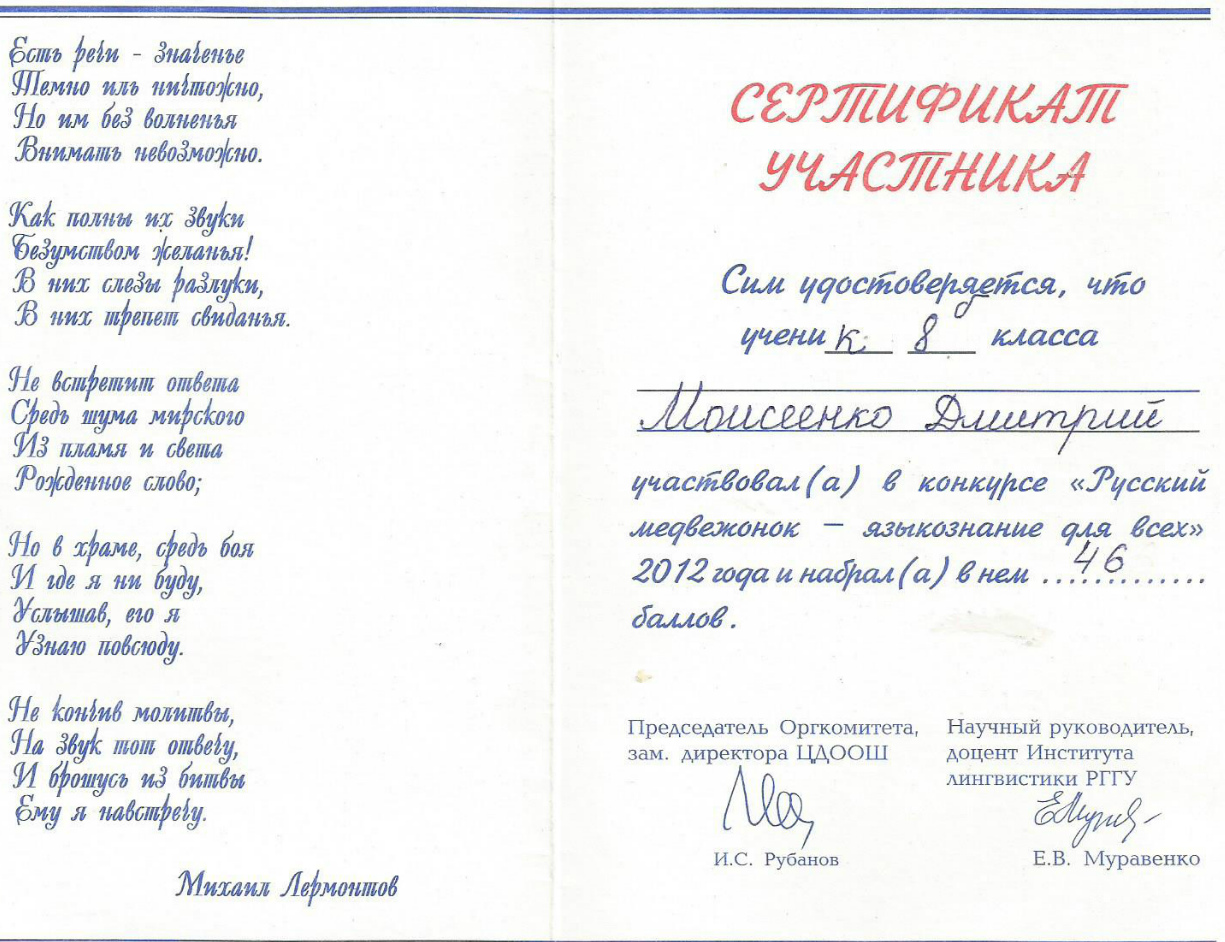 Есть речи - значенье
Темно иль ничтожно,
Но им без волненья
Внимать невозможно.
Как полны их звуки
Безумством желанья!
В них слезы разлуки,
В них трепет свиданья.
Не встретит ответа
Средь шума мирского
Из пламя и света
Рожденное слово;
Но в храме, средь боя
И где я ни буду,
Услышав, его я
Узнаю повсюду.
Не кончив молитвы,
На звук тот отвечу,
И брошусь из битвы
Ему я навстречу.
Михаил Лермонтов
СЕРТИФИКАТ
УЧАСТНИКА
Сим удостоверяется, что
ученик 8б класса
Моисеенко Дмитрий
участвовал(а) в конкурсе «Русский
медвежонок – языкознание для всех»
2012 года и набрал(а) в нем ...46...
баллов.
Председатель Оргкомитета,
зам. директора ЦДООШ
И.С. Рубанов
Научный руководитель,
доцент Института
лингвистики РГГУ
Е.В. Муравенко